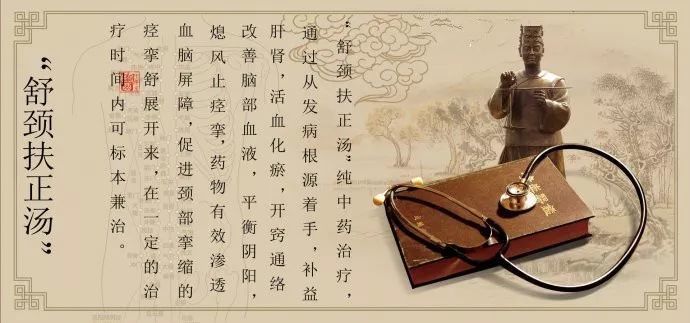 “舒颈扶正汤”
“舒颈扶正汤”纯中药治疗，
通过从发病根源着手，补益
肝肾，活血化瘀，开窍通络
改善脑部血液，平衡阴阳，
熄风止痉挛，药物有效渗透
血脑屏障，促进颈部挛缩的
痉挛舒展开来，在一定的治
疗时间内可标本兼治。